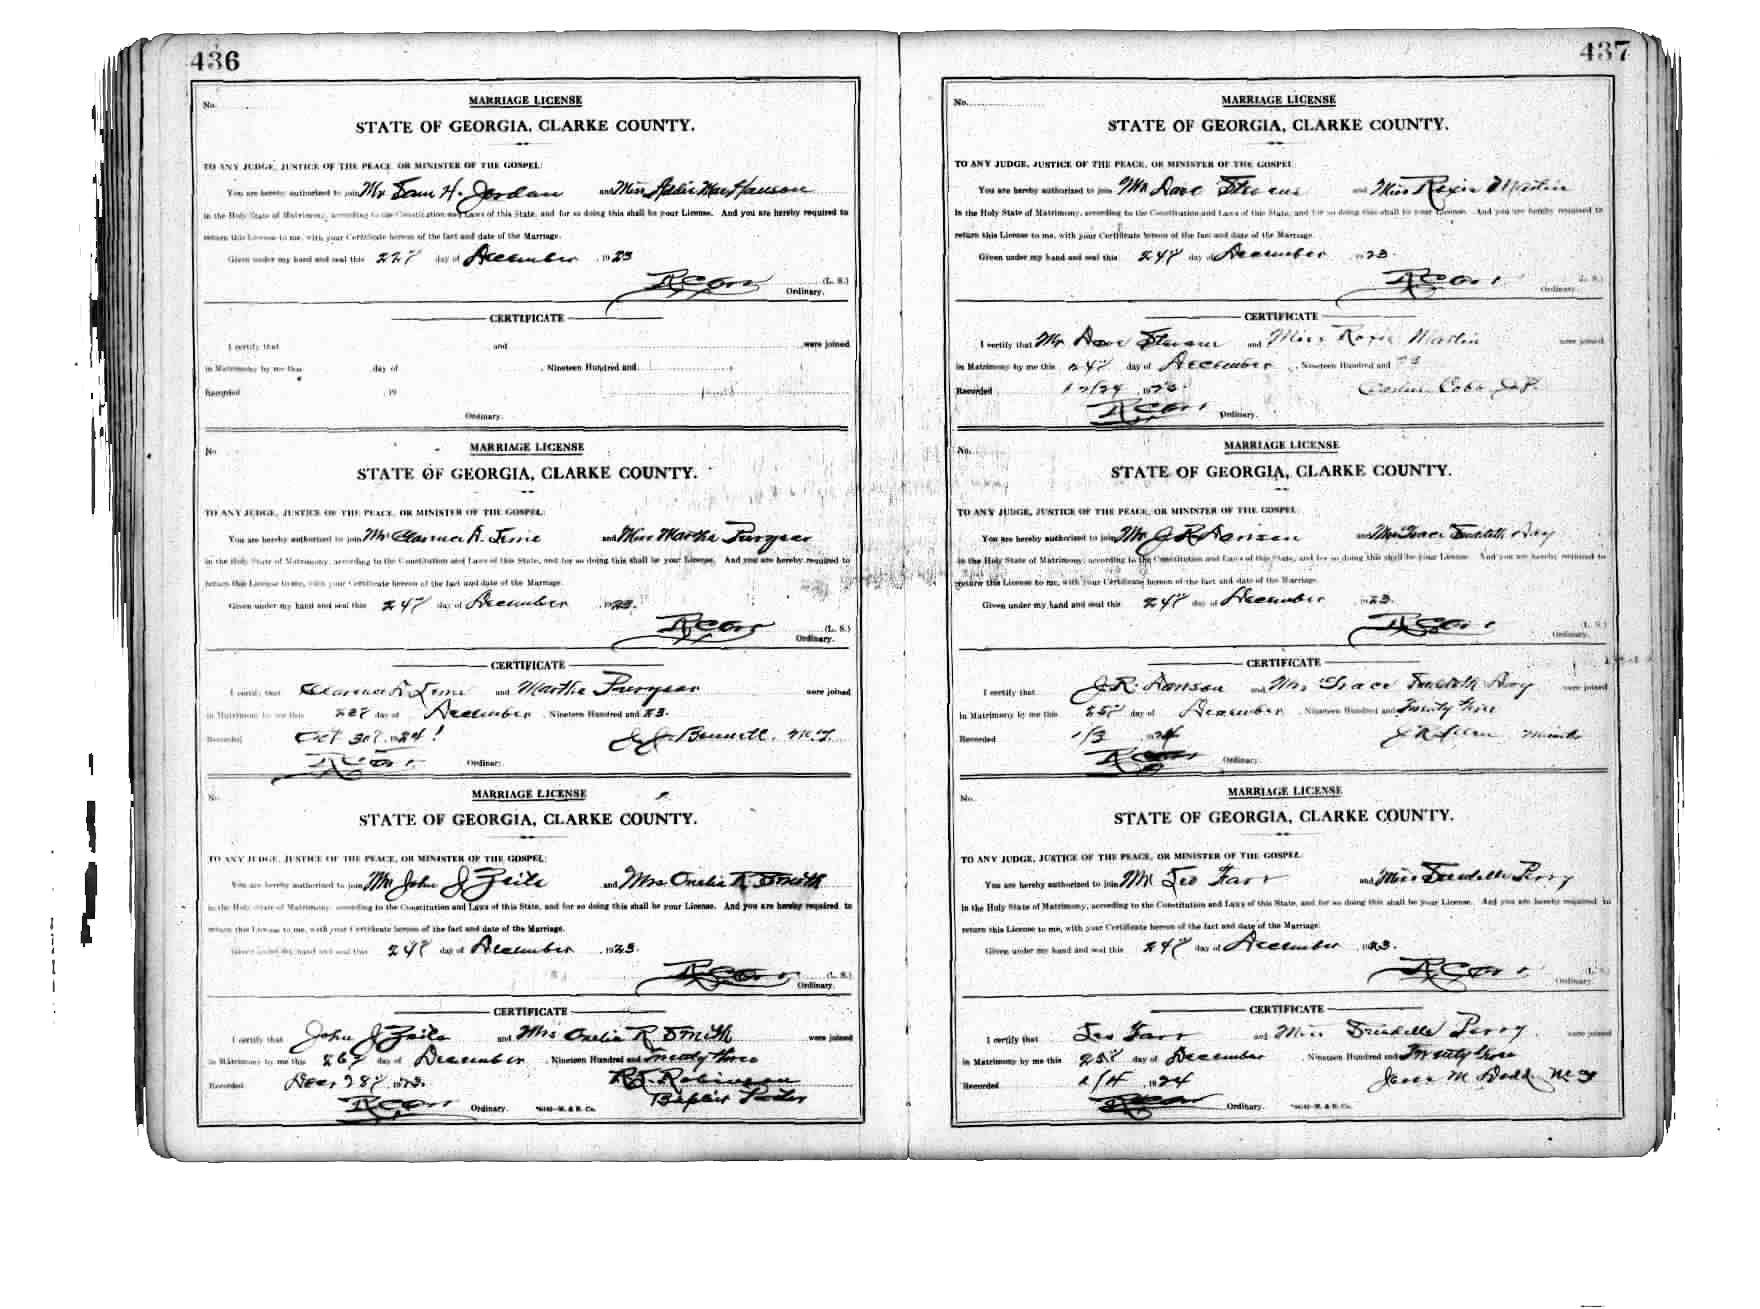 436
No.
MARRIAGE LICENSE
STATE OF GEORGIA, CLARKE COUNTY.
TO ANY JUDGE, JUSTICE OF THE PEACE, OR MINISTER OF THE GOSPEL:
You are hereby authorized to join Mr Sam H. Jordan and Miss Addie Mae Hanson
in the Holy State of Matrimony, according to the Constitution and Laws of this State, and for so doing this shall be your License. And you are hereby required to
return this License to me, with your Certificate hereon of the fact and date of the Marriage.
Given under my hand and seal this 22" day of December 1923
R C Orr (L. S.)
Ordinary.
CERTIFICATE
I certify that and were joined
in Matrimony by me this day of , Nineteen Hundred and
Recorded 19
Ordinary.
No.
MARRIAGE LICENSE
STATE OF GEORGIA, CLARKE COUNTY.
TO ANY JUDGE, JUSTICE OF THE PEACE, OR MINISTER OF THE GOSPEL:
You are hereby authorized to join Mr Clarence A. and Miss Martha Puryear
in the Holy State of Matrimony, according to the Constitution and Laws of this State, and for so doing this shall be your License. And you are hereby required to
return this License to me, with your Certificate hereon of the fact and date of the Marriage.
Given under my hand and seal this 24" day of December 1923.
R C Orr (L. S.)
Ordinary.
CERTIFICATE
I certify that Clarence A. and Martha Puryear were joined
in Matrimony by me this day of December, Nineteen Hundred and 23.
Recorded Oct 30" 1924 J. J. Bennett, M.G.
R C Orr Ordinary.
No.
MARRIAGE LICENSE
STATE OF GEORGIA, CLARKE COUNTY.
TO ANY JUDGE, JUSTICE OF THE PEACE, OR MINISTER OF THE GOSPEL:
You are hereby authorized to join Mr John J and Mrs Omelia R. Smith
in the Holy State of Matrimony, according to the Constitution and Laws of this State, and for so doing this shall be your License. And you are hereby required to
return this License to me, with your Certificate hereon of the fact and date of the Marriage.
Given under my hand and seal this 24" day of December 1923.
R C Orr (L. S.)
Ordinary.
CERTIFICATE
I certify that John J and Mrs Omelia R Smith were joined
in Matrimony by me this 26" day of December, Nineteen Hundred and Twenty three
Recorded Dec. 28" 1923. Robinson
R C Orr Ordinary. Baptist Pastor
437
No.
MARRIAGE LICENSE
STATE OF GEORGIA, CLARKE COUNTY.
TO ANY JUDGE, JUSTICE OF THE PEACE, OR MINISTER OF THE GOSPEL:
You are hereby authorized to join Mr Dave Stevens and Miss Roxie Martin
in the Holy State of Matrimony, according to the Constitution and Laws of this State, and for so doing this shall be your License. And you are hereby required to
return this License to me, with your Certificate hereon of the fact and date of the Marriage.
Given under my hand and seal this 24" day of December 1923.
R C Orr (L. S.)
Ordinary.
CERTIFICATE
I certify that Mr Dave Stevens and Miss Roxie Martin were joined
in Matrimony by me this 24" day of December, Nineteen Hundred and 23
Recorded 12/24 1923. Cobb J.P.
R C Orr Ordinary.
No.
MARRIAGE LICENSE
STATE OF GEORGIA, CLARKE COUNTY.
TO ANY JUDGE, JUSTICE OF THE PEACE, OR MINISTER OF THE GOSPEL:
You are hereby authorized to join Mr J R Hanson and Mrs Grace
in the Holy State of Matrimony, according to the Constitution and Laws of this State, and for so doing this shall be your License. And you are hereby required to
return this License to me, with your Certificate hereon of the fact and date of the Marriage.
Given under my hand and seal this 24" day of December 1923.
R C Orr (L. S.)
Ordinary.
CERTIFICATE
I certify that J. R. Hanson and Mrs Grace were joined
in Matrimony by me this 25" day of December, Nineteen Hundred and Twenty three
Recorded 1/3 1924
R C Orr Ordinary.
No.
MARRIAGE LICENSE
STATE OF GEORGIA, CLARKE COUNTY.
TO ANY JUDGE, JUSTICE OF THE PEACE, OR MINISTER OF THE GOSPEL:
You are hereby authorized to join Mr Leo Farr and Miss Perry
in the Holy State of Matrimony, according to the Constitution and Laws of this State, and for so doing this shall be your License. And you are hereby required to
return this License to me, with your Certificate hereon of the fact and date of the Marriage.
Given under my hand and seal this 24" day of December 1923.
R C Orr (L. S.)
Ordinary.
CERTIFICATE
I certify that Leo Farr and Miss Perry were joined
in Matrimony by me this 25" day of December, Nineteen Hundred and Twenty three
Recorded 1/4 1924 M. Dodd M G
R C Orr Ordinary.